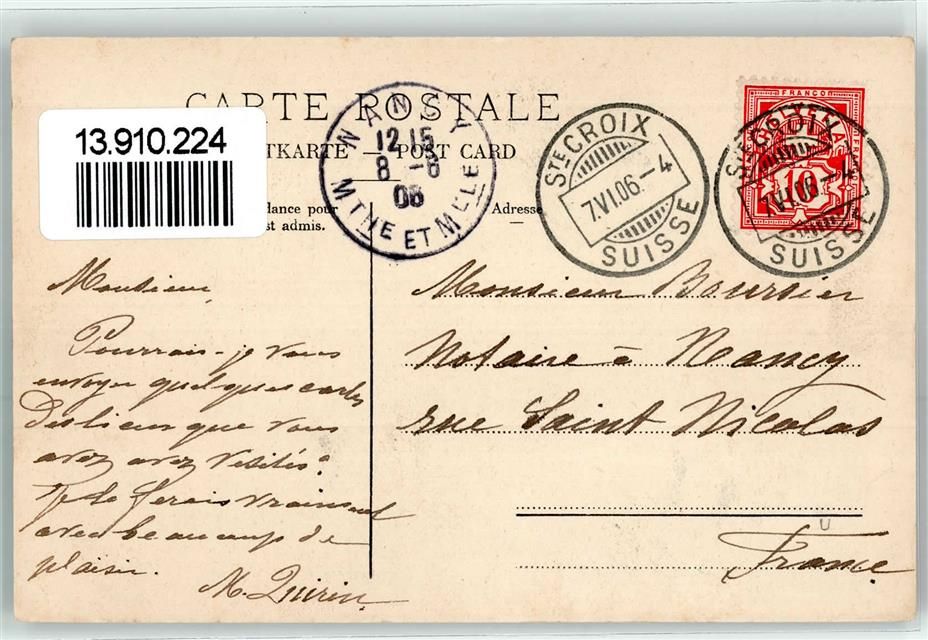 CARTE POSTALE
13.910.224
TKARTE — POST CARD
dance pour
Adresse
st admis.
NANCY
12 15
8 -6
06
MTHE ET MLLE
STE CROIX
7.VI.06.-4
SUISSE
STE CROIX
7.VI.06.-4
SUISSE
FRANCO
HELVETIA
10
Monsieur
Pourrais-je vous
envoyer quelques cartes
Des lieux que vous
avez avez visités?
Je le ferais vraiment
avec beaucoup de
plaisir.
M. Quirin
Monsieur Boursier
Notaire à Nancy
rue Saint Nicolas
France.
U